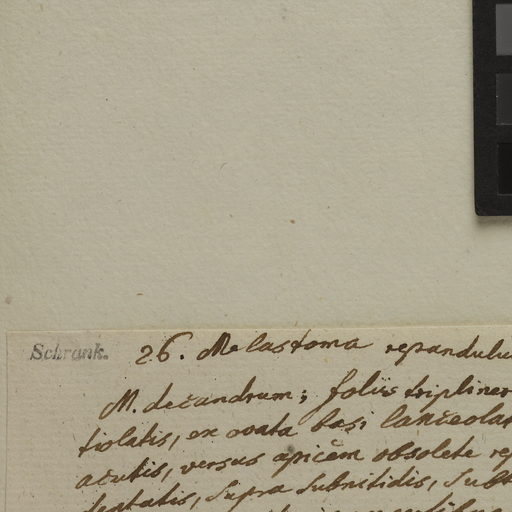 Schrank. 26. Melastoma repandulu
M. decandrum; foliis tripliner
tiolatis, ex ovata basi lanceolat
acutis, versus apicem obsolete rep
dentatis, supra subnitidis, subt